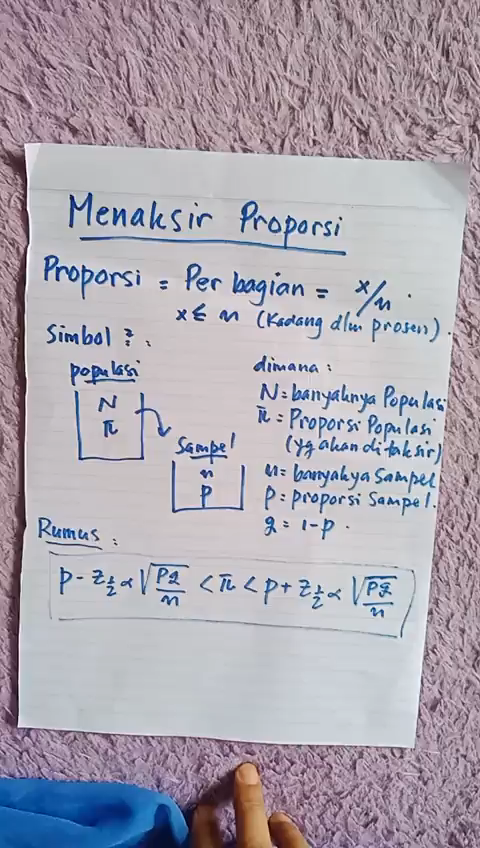 Menaksir Proporsi
Proporsi = Per bagian = x/n.
x ≤ n (Kadang dlm prosen).
Simbol ² :.
populasi
N
π
Sampel
n
p
dimana :
N = banyaknya Populasi
π = Proporsi Populasi
(yg akan ditaksir)
n = banyakya Sampel
P = proporsi Sampel.
q = 1-p.
Rumus :
p - z½α √pq/n < π < p + z½α √pq/n